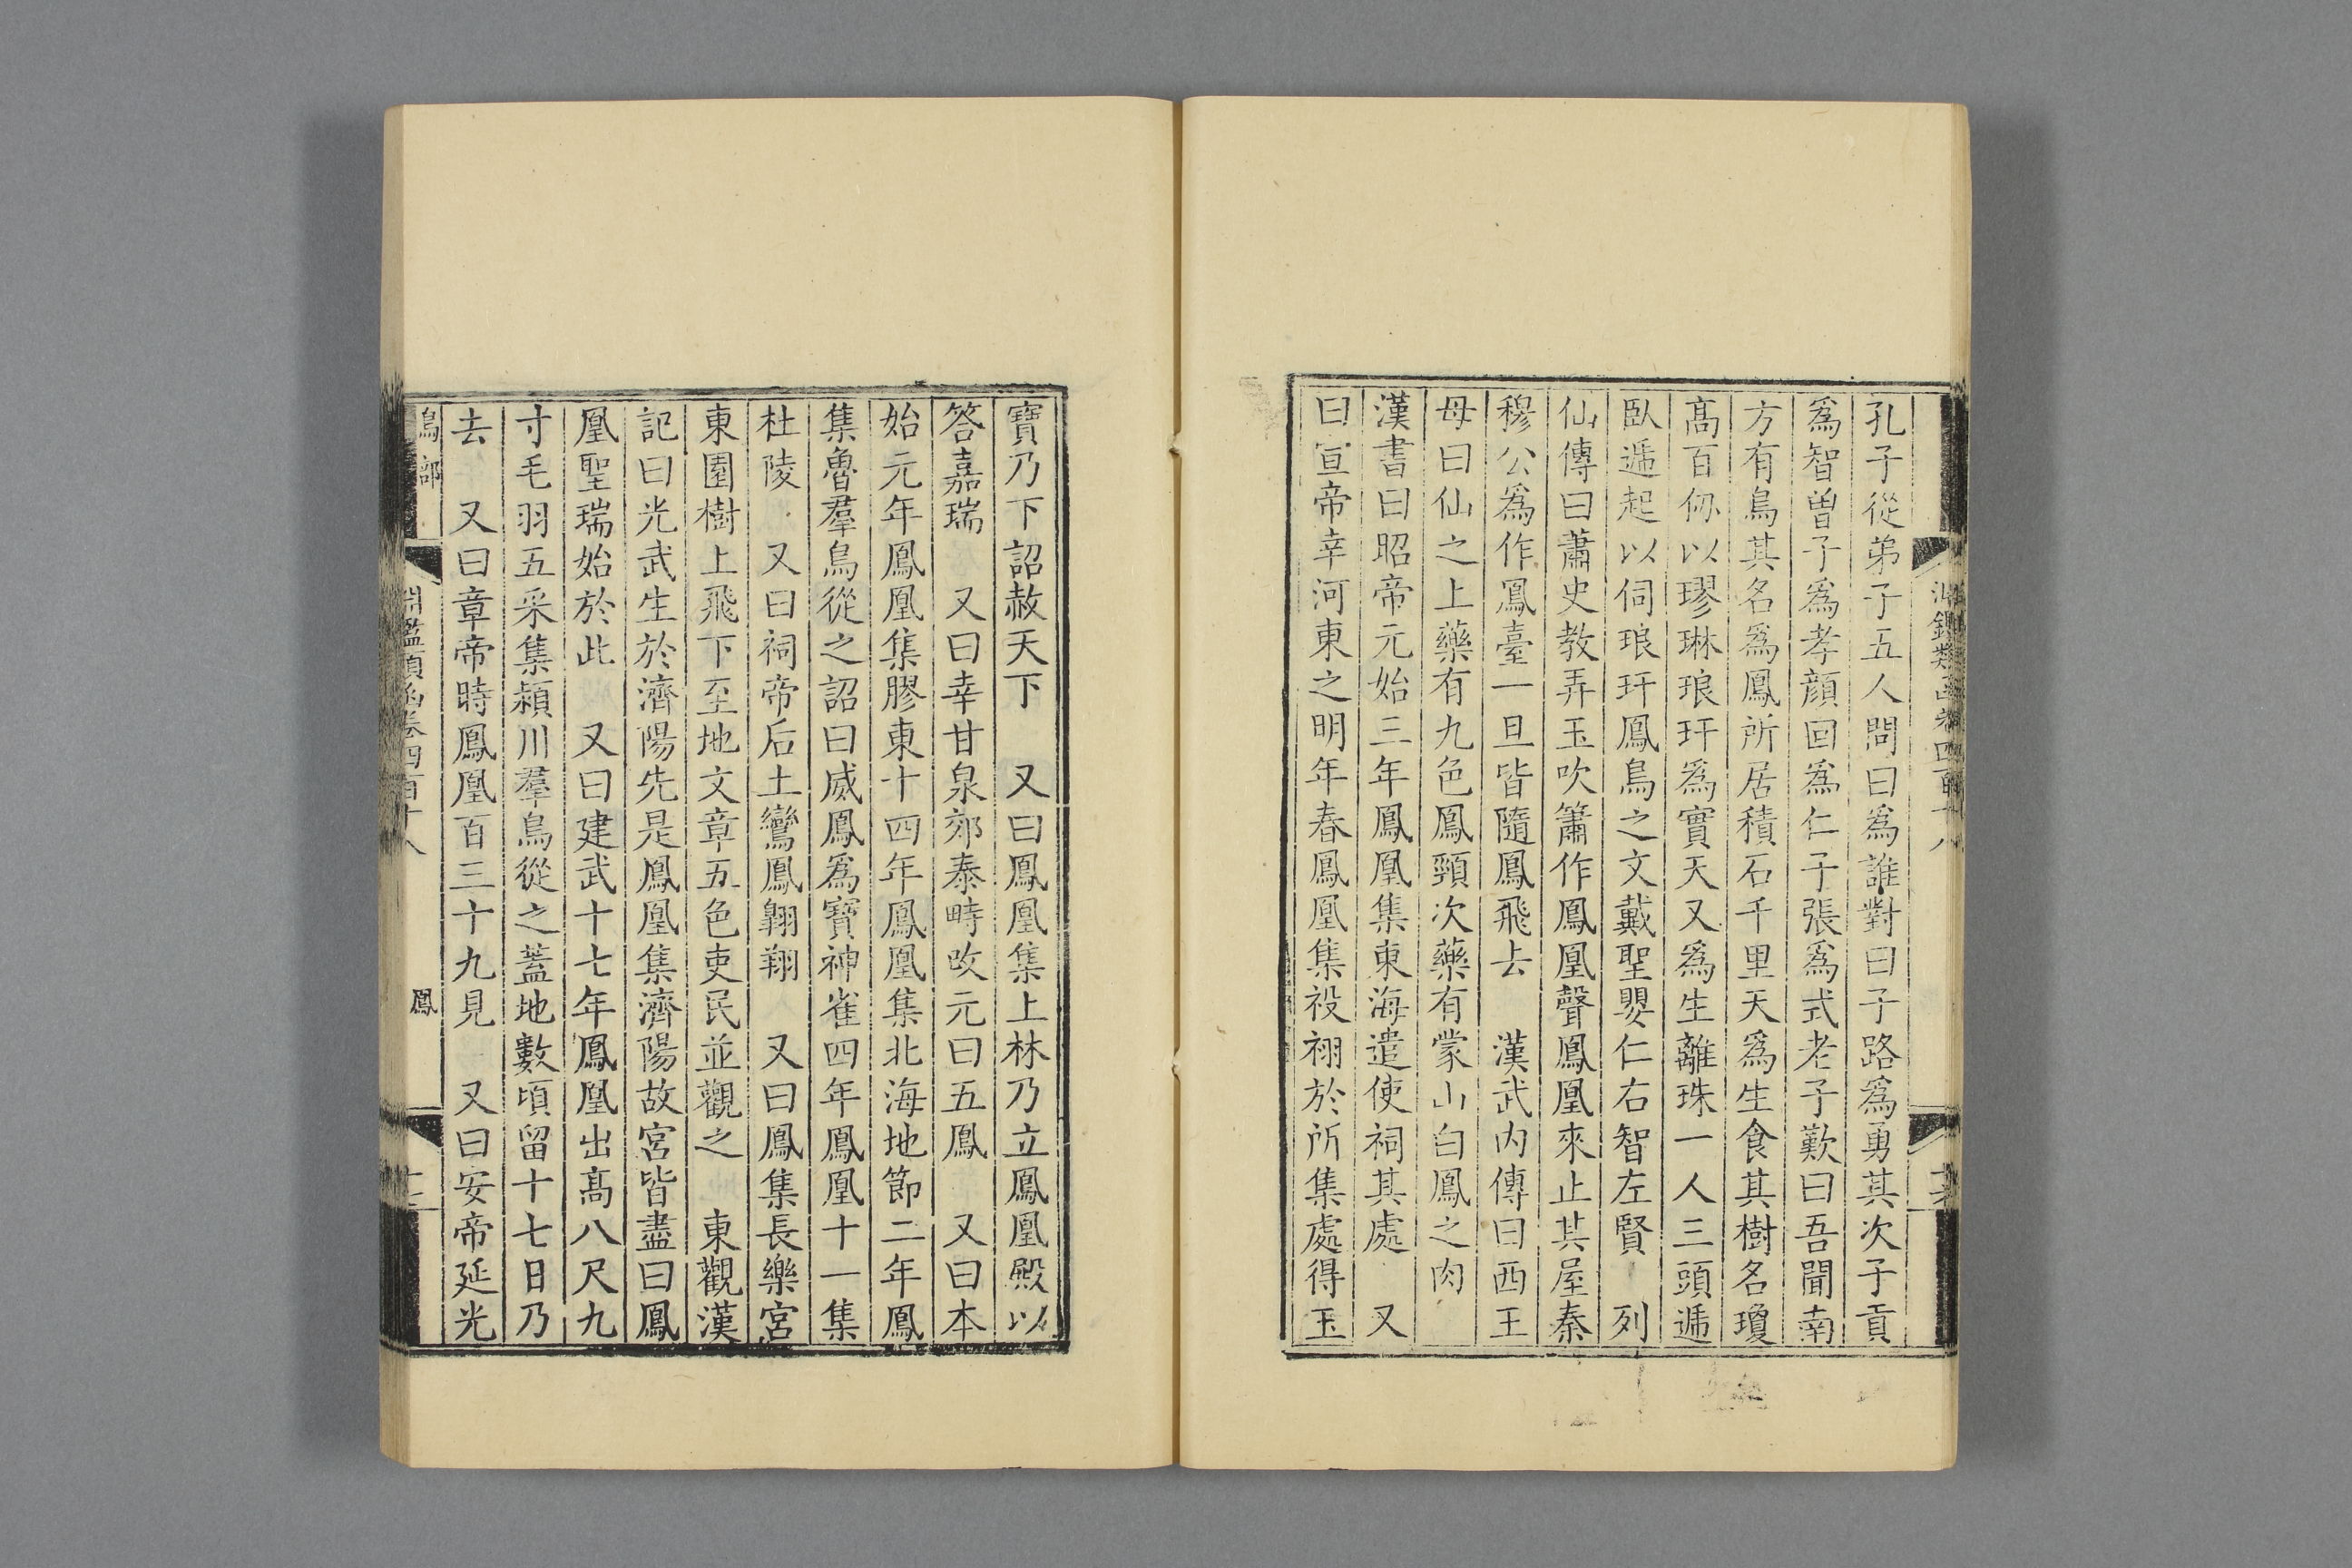 孔子從弟子五人問曰爲誰對曰子路爲勇其次子貢
爲智曽子爲孝顔回爲仁子張爲式老子歎曰吾聞南
方有鳥其名爲鳳所居積石千里天爲生食其樹名瓊
髙百仭以璆琳琅玕爲實天又爲生離珠一人三頭遞
臥遞起以伺琅玕鳳鳥之文戴聖嬰仁右智左賢 列
仙傳曰蕭史教弄玉吹簫作鳳凰聲鳳凰來止其屋秦
穆公爲作鳳臺一旦皆隨鳳飛去 漢武内傳曰西王
母曰仙之上藥有九色鳳頸次藥有蒙山白鳳之肉
漢書曰昭帝元始三年鳳凰集東海遣使祠其處 又
曰宣帝幸河東之明年春鳳凰集祋祤於所集處得玉
寶乃下詔赦天下 又曰鳳凰集上林乃立鳳凰殿以
答嘉瑞 又曰幸甘泉郊泰畤改元曰五鳳 又曰本
始元年鳳凰集膠東十四年鳳凰集北海地節二年鳳
集魯羣鳥從之詔曰威鳳爲寶神雀四年鳳凰十一集
杜陵 又曰祠帝后土鸞鳳翺翔 又曰鳳集長樂宮
東園樹上飛下至地文章五色吏民並觀之 東觀漢
記曰光武生於濟陽先是鳳凰集濟陽故宮皆畫曰鳳
凰聖瑞始於此 又曰建武十七年鳳凰出髙八尺九
寸毛羽五采集潁川羣鳥從之蓋地數頃留十七日乃
去 又曰章帝時鳳凰百三十九見 又曰安帝延光
鳥部
淵鑑類函卷四百十八
鳳